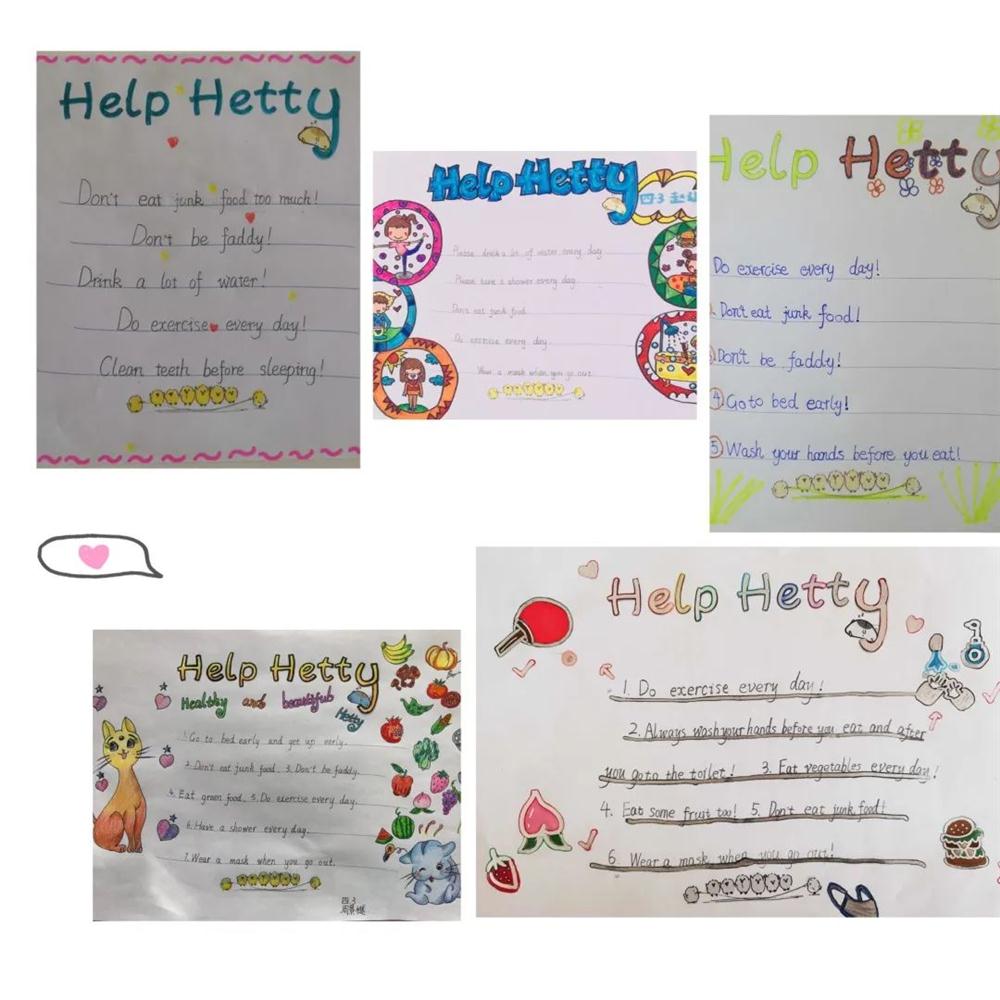 Help Hetty
Don't eat junk food too much!
Don't be faddy!
Drink a lot of water!
Do exercise every day!
Clean teeth before sleeping!
Help Hetty
四.3
Please drink a lot of water every day
Please take a shower every day.
Don't eat junk food.
Do exercise every day.
Wear a mask when you go out.
Help Hetty
Do exercise every day!
Don't eat junk food!
Don't be faddy!
④ Go to bed early!
⑤ Wash your hands before you eat!
Help Hetty
Healthy and beautiful
Hetty
1. Go to bed early and get up early.
2. Don't eat junk food. 3. Don't be faddy.
4. Eat green food. 5. Do exercise every day.
6. Have a shower every day.
7. Wear a mask when you go out.
四.3
Help Hetty
1. Do exercise every day!
2. Always wash your hands before you eat and after
you go to the toilet! 3. Eat vegetables every day!
4. Eat some fruit too! 5. Don't eat junk food!
6. Wear a mask when you go out!